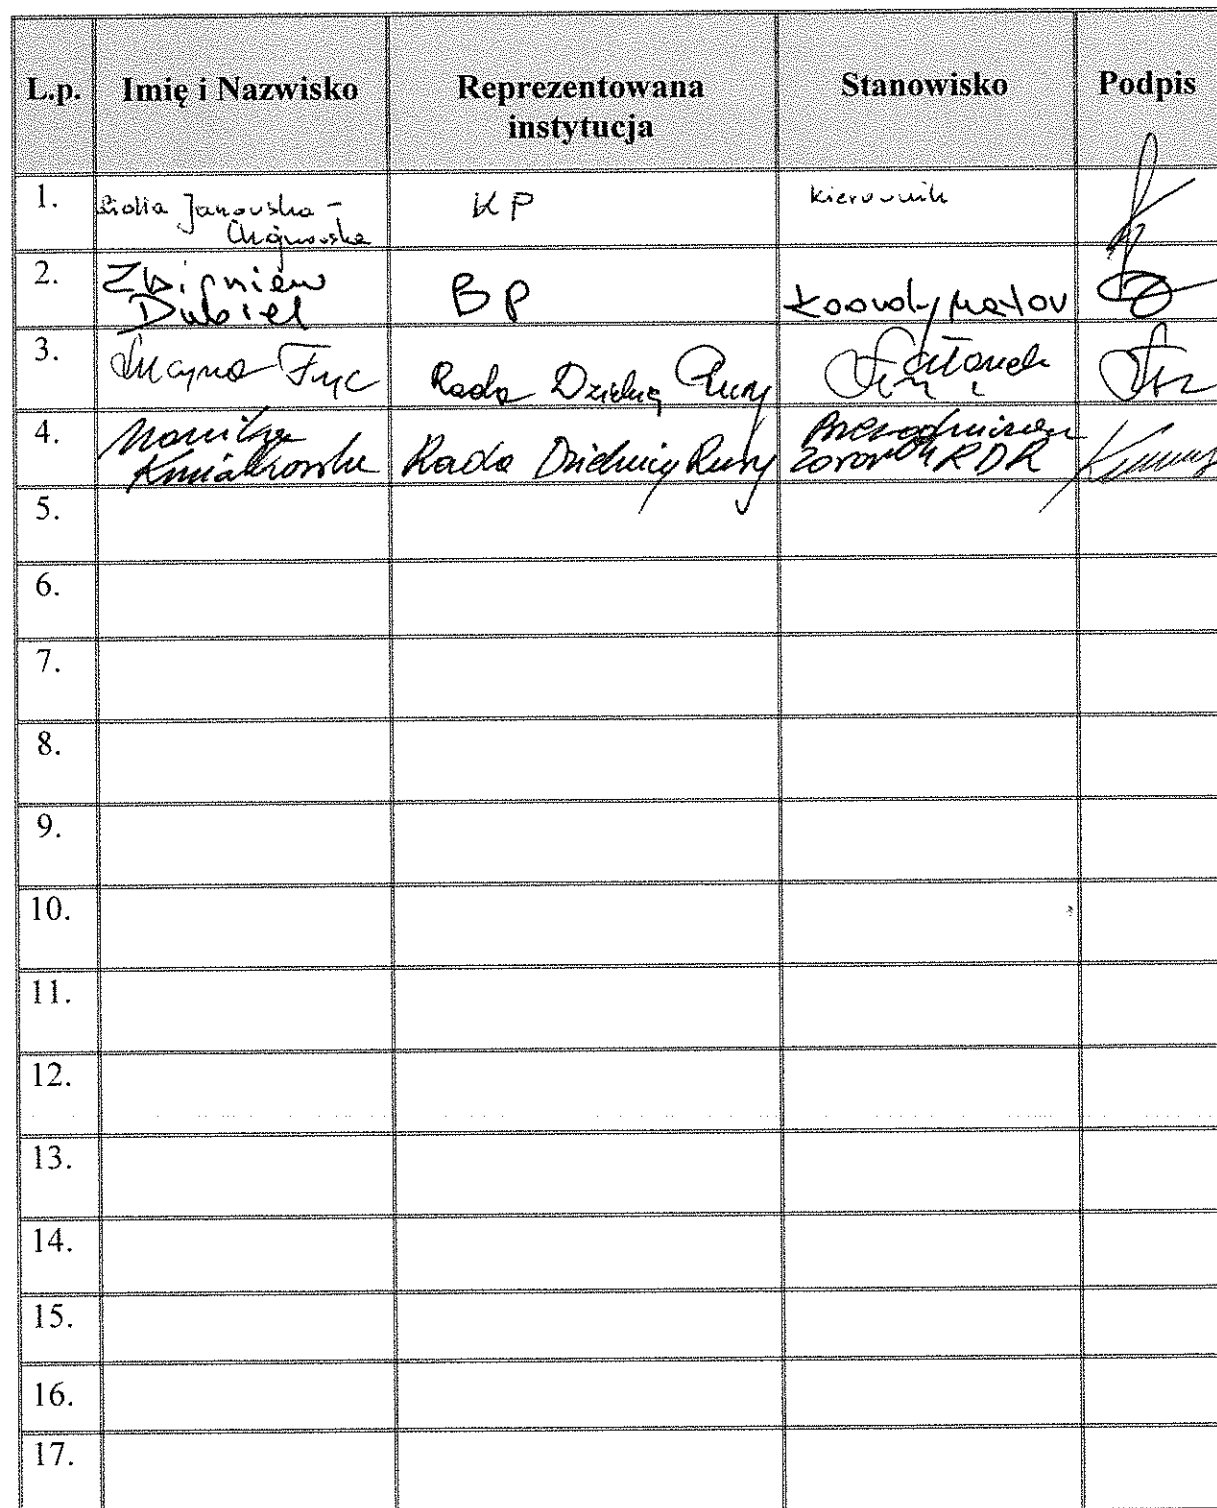 L.p. Imię i Nazwisko Reprezentowana instytucja Stanowisko Podpis
1. Lidia Janowska - KP Kierownik
2. Zbigniew Dubiel BP Koordynator
3. Fyc Rada Dzielnicy Rury Członek
4. Monika Kwiatkowska Rada Dzielnicy Rury Przewodnicząca Zarządu RDR
5.
6.
7.
8.
9.
10.
11.
12.
13.
14.
15.
16.
17.